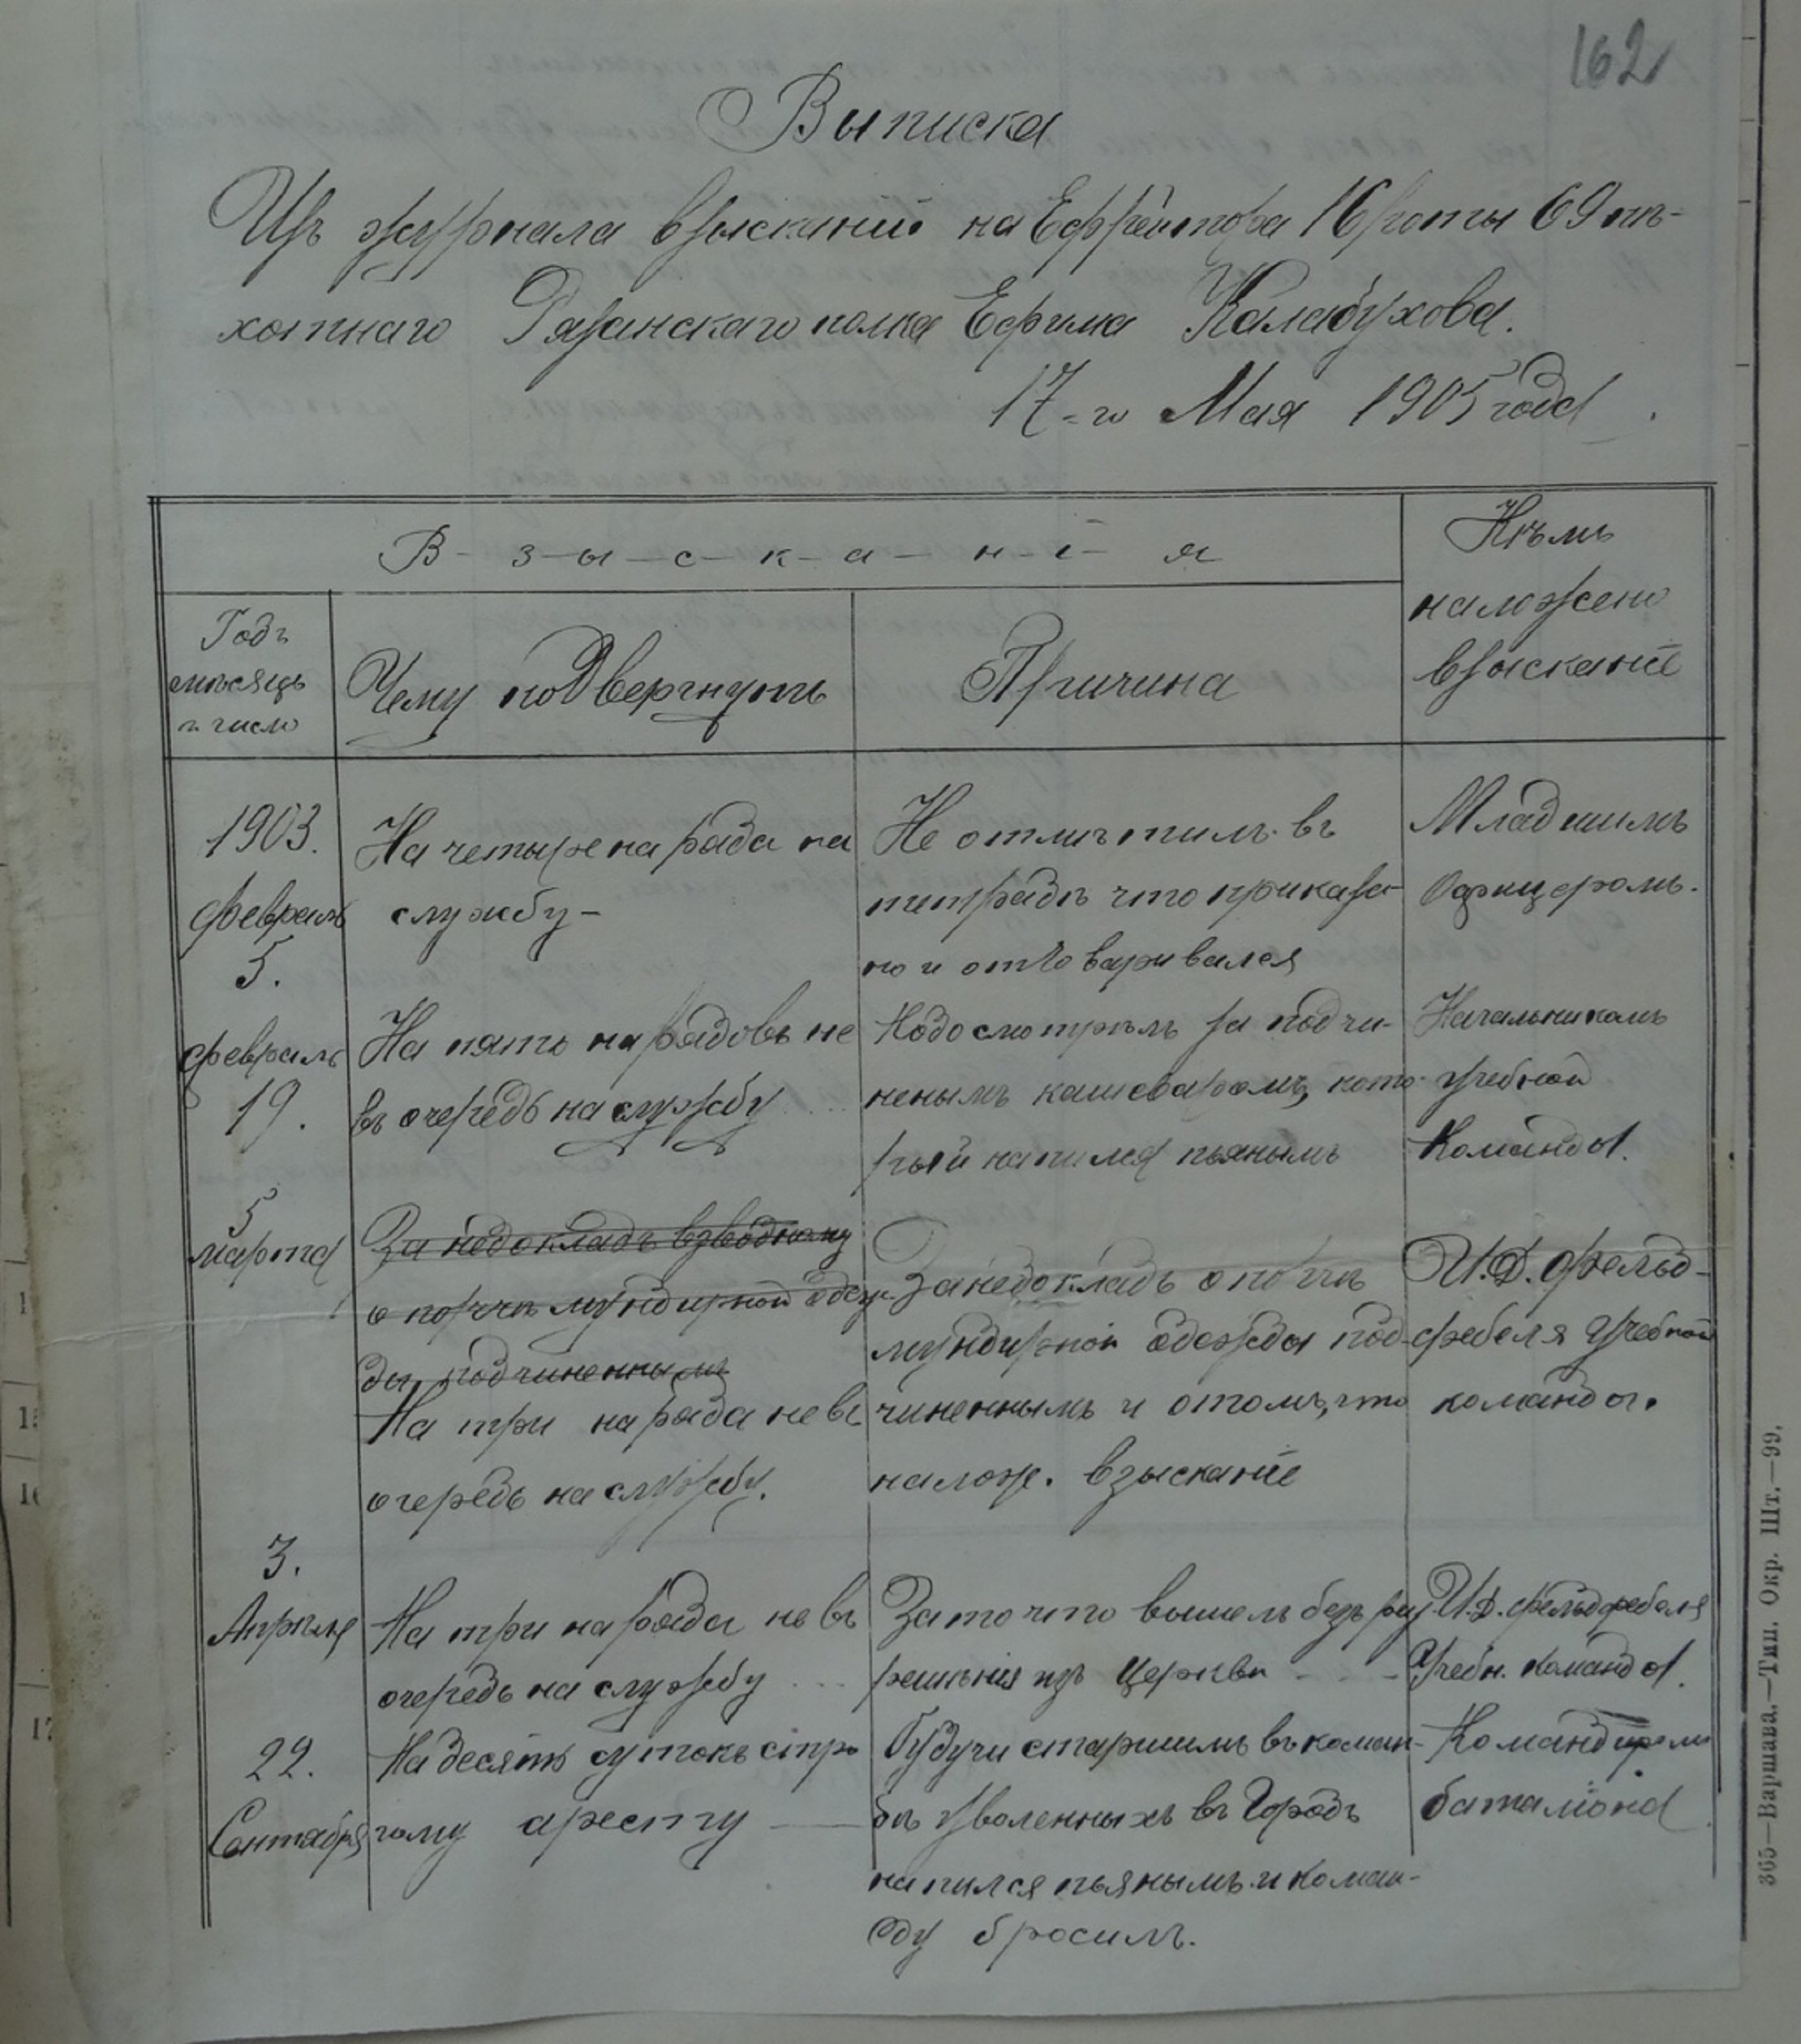 162
Выписка
Изъ журнала взысканий на Ефрейтора 16 роты 69 пѣ-
хотнаго Рязанскаго полка Ефима Калабухова.
17-го Мая 1905 года.
В-з-ы-с-к-а-н-і-я
Кѣмъ
наложено
взысканіе
Годъ
мѣсяцъ
и число
Чему подвергнутъ
Причина
1903.
февраль
5.
На четыре наряда на
службу-
Не отмѣтилъ въ
тетрадѣ что приказа-
но и отговаривался
Младшимъ
Офицеромъ.
февраль
19.
На пять нарядовъ не
въ очередь на службу ....
Недосмотрѣлъ за подчи-
неннымъ кашеваромъ, кото-
рый напился пьянымъ
Начальникомъ
учебной
Команды.
5
марта
За недокладъ взводному
о порчѣ мундирной одеж-
ды подчиненнымъ
На три наряда не въ
очередь на службу.
За недокладъ о порчѣ
мундирной одежды под-
чиненнымъ и о томъ, что
налож. взысканіе
И.Д. фельд-
фебеля Учебной
команды.
3.
Апрѣля
На три наряда не въ
очередь на службу ...
За то что вышелъ безъ раз-
решенія изъ Церкви - . -
И.Д. фельдфебеля
Учебн. команды.
22.
Сентября
На десять сутокъ стро-
гому аресту —
Будучи старшимъ въ коман-
дѣ уволенныхъ въ Городъ
напился пьянымъ и коман-
ду бросилъ.
Командиромъ
баталіона
365—Варшава.—Тип. Окр. Шт.—99.